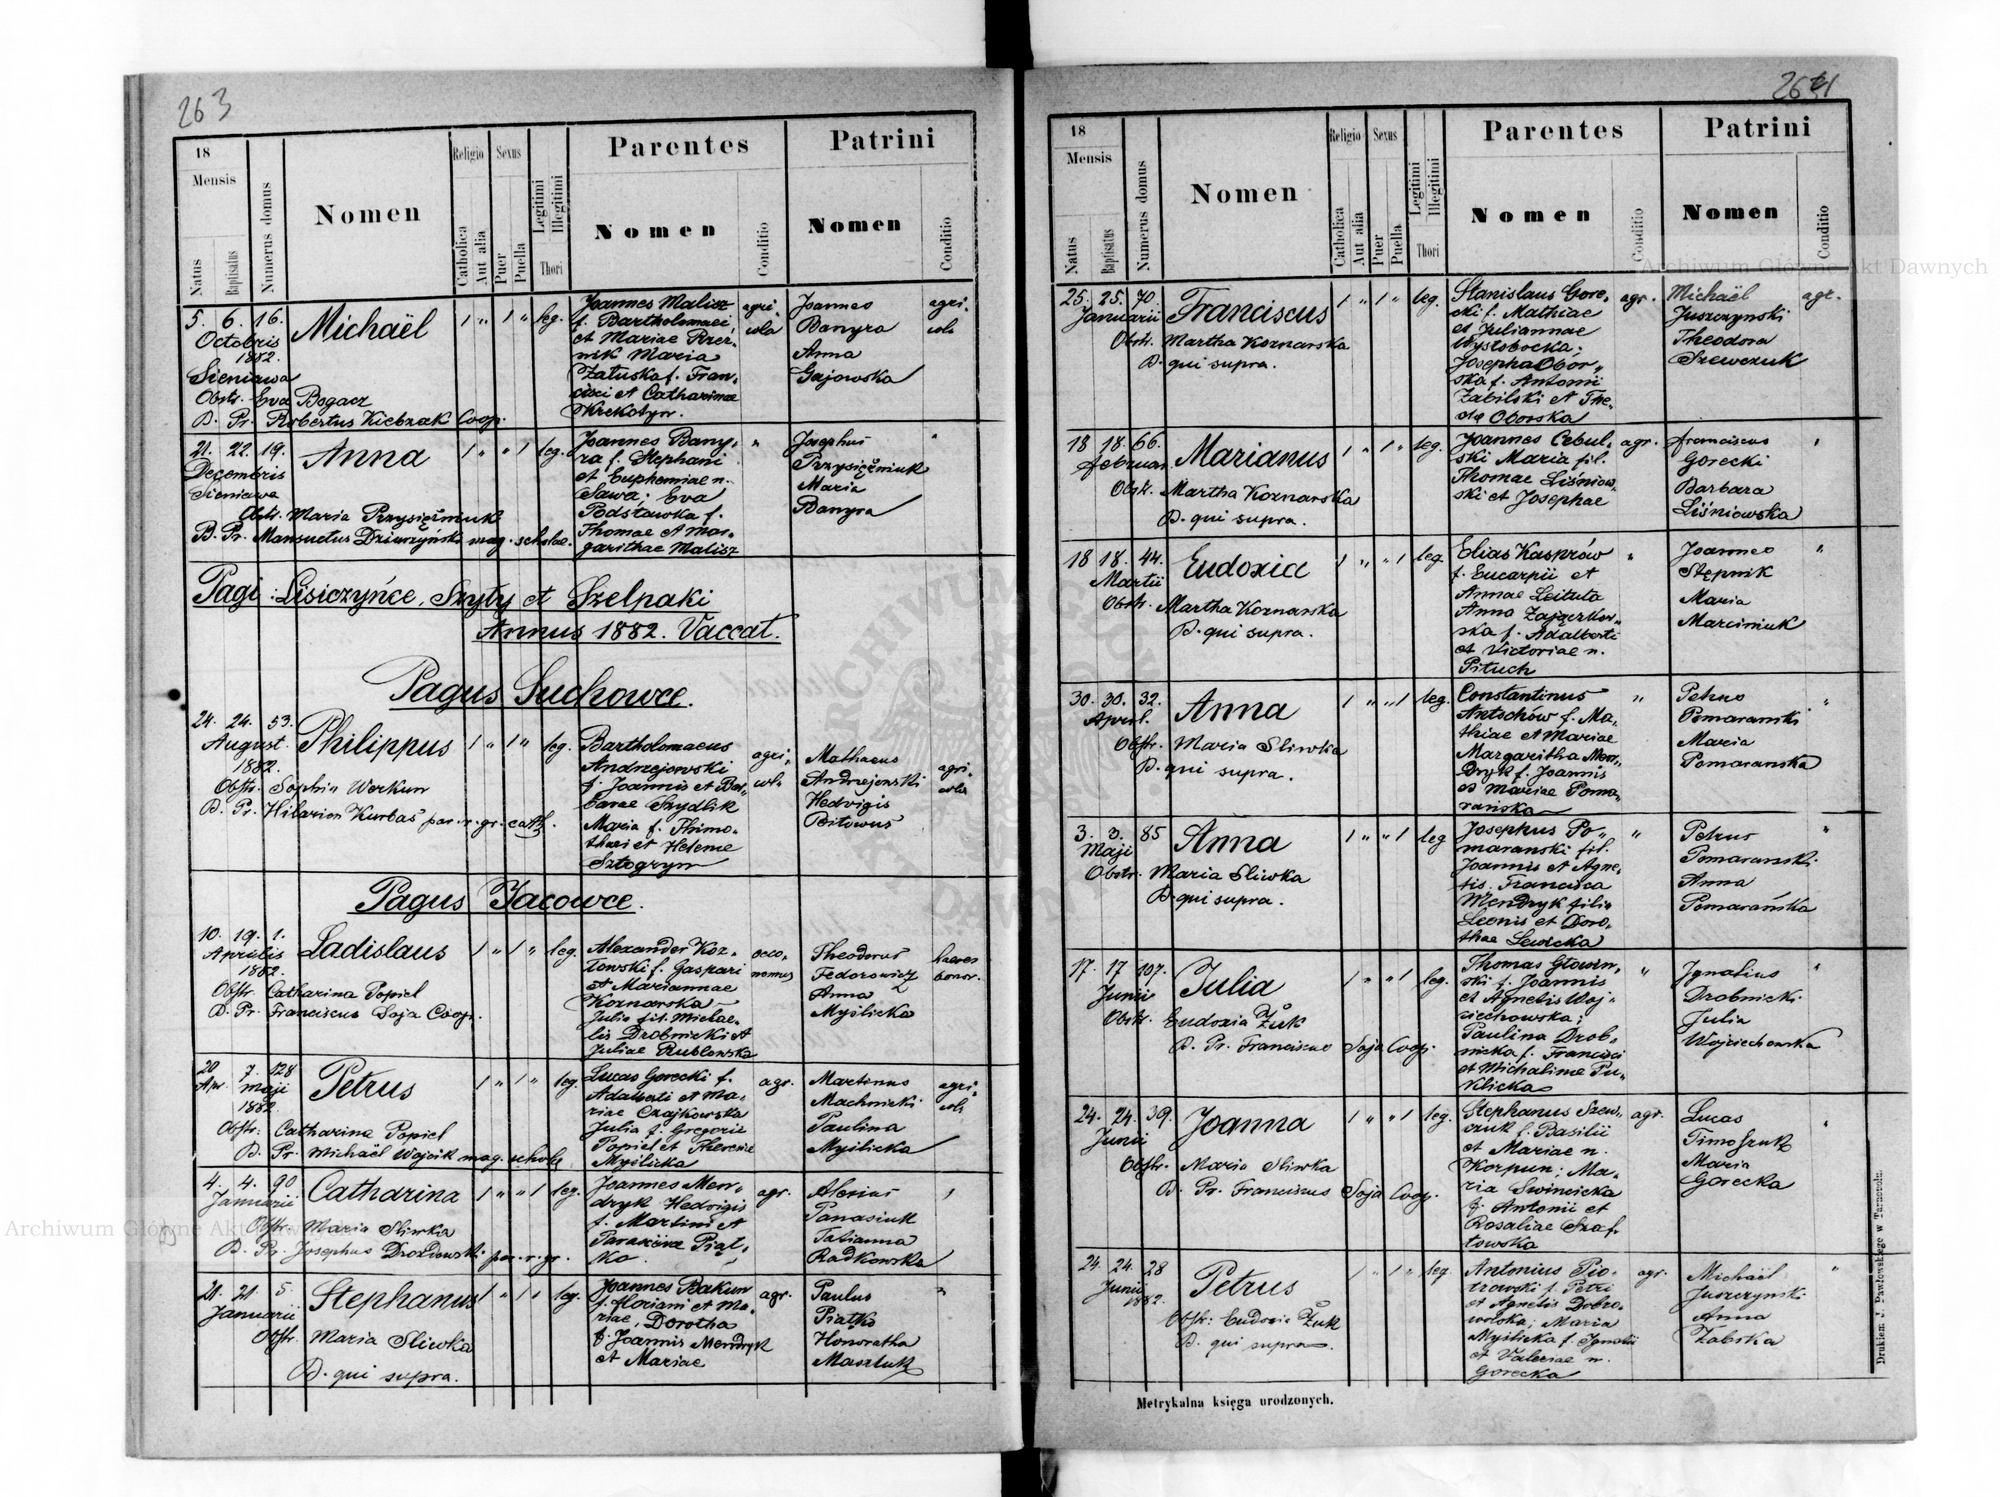 263
18
Mensis
Natus
Baptisatus
Numerus domus
Nomen
Religio
Catholica
Aut alia
Sexus
Puer
Puella
Legitimi
Illegitimi
Thori
Parentes
Nomen
Conditio
Patrini
Nomen
Conditio
5. 6. 16.
Octobris
1882.
Sieniawa
Michaël
1 „ 1 „ leg.
Obstr. Eva Bogacz
B. Pr. Robertus Kiebzak Coop.
Joannes Malisz
f. Bartholomaei
et Mariae
Maria
Załuska f. Fran-
cisci et Catharinae
Wrekotyn.
agri-
cola
Joannes
Banyra
Anna
Gajowska
agri-
cola
21. 22. 19.
Decembris
Sieniawa
Anna
1 „ „ 1 leg.
Obstr. Maria Przysiężniuk
B. Pr. Mansuetus Dziurzynski mag. scholae.
Joannes Bany-
ra f. Stephani
et Euphemiae n.
Sawa; Eva
Podstawka f.
Thomae et Mar-
garithae Malisz
„
Josephus
Przysiężniuk
Maria
Banyra
„
Pagi: Lisiczyńce, Szyły et Szelpaki
Annus 1882. Vaccat.
Pagus Suchowce.
24. 24. 53.
August.
1882.
Philippus
1 „ 1 „ leg.
Obstr. Sophia Werkun
B. Pr. Hilarion Kurbas par. r. gr. cath.
Bartholomaeus
Andrzejowski
f. Joannis et Bar-
barae Szydlik
Maria f. Thimo-
thaei et Helenae
Sztogryn
agri-
cola
Mathaeus
Andrzejowski
Hedvigis
Bitowus
agri-
cola
Pagus Jacowce.
10. 19. 1.
Aprilis
1882.
Ladislaus
1 „ 1 „ leg.
Obstr. Catharina Popiel
B. Pr. Franciscus Soja Coop.
Alexander Koz-
łowski f. Gaspari
et Mariannae
Koznarska
Julia fil. Michae-
lis Drobnicki et
Juliae Rublowska
oeco-
nomus
Theodorus
Fedorowicz
Anna
Myślicka
haeres
bonor.
20 7. 128
Apr. Maji
1882
Petrus
1 „ 1 „ leg.
Obstr. Catharina Popiel
B. Pr. Michaël Wojcik mag. schole
Lucas Gorecki f.
Adalberti et Ma-
riae Czajkowska
Julia f. Gregorii
Popiel et Therenie
Myślicka
agr.
Martinus
Machnicki
Paulina
Myślicka
agri-
cola
4. 4. 90
Januarii
Catharina
1 „ „ 1 leg.
Obstr. Maria Sliwka
B. Pr. Josephus Drozdowski par. r. gr.
Joannes Men-
dryk Hedvigis
f. Martini et
Parascive Piąt-
ko.
agr.
Alexius
Panasiuk
Tatianna
Radkowska
„
21. 21. 5.
Januarii
Stephanus
1 „ 1 „ leg.
Obstr. Maria Sliwka
B. qui supra.
Joannes Bakun
f. Floriani et Ma-
riae, Dorotha
f. Joannis Mendryk
et Mariae
agr.
Paulus
Piątko
Honoratha
Maszluk
„
264
18
Mensis
Natus
Baptisatus
Numerus domus
Nomen
Religio
Catholica
Aut alia
Sexus
Puer
Puella
Legitimi
Illegitimi
Thori
Parentes
Nomen
Conditio
Patrini
Nomen
Conditio
25. 25. 70.
Januarii
Franciscus
1 „ 1 „ leg.
Obstr. Martha Koznarska
B. qui supra.
Stanislaus Gore-
cki f. Mathiae
et Juliannae
Wysłobocka.
Josepha Obór-
ska f. Antonii
Zabilski et The-
cle Oborska
agr.
Michaël
Juszczynski
Theodora
Szewczuk
agr.
18 18. 66.
Februar.
Marianus
1 „ 1 „ leg.
Obstr. Martha Koznarska
B. qui supra.
Joannes Cebul-
ski Maria fil.
Thomae Liśniow-
ski et Josephae
agr.
Franciscus
Gorecki
Barbara
Liśniowska
„
18 18. 44.
Martii
Eudoxia
1 „ „ 1 leg.
Obstr. Martha Koznarska
B. qui supra.
Elias Kasprów
f. Eucarpii et
Annae Leituta
Anna Zajączkow-
ska f. Adalberti
et Victoriae n.
Pituch
„
Joannes
Stępnik
Maria
Marciniuk
„
30. 30. 32.
April.
Anna
1 „ „ 1 leg.
Obstr. Maria Sliwka
B. qui supra.
Constantinus
Antschów f. Ma-
thiae et Mariae
Margaritha Men-
dryk f. Joannis
et Mariae Poma-
rańska
„
Petrus
Pomaranski
Maria
Pomaranska
„
3. 3. 85
Maji
Anna
1 „ „ 1 leg
Obstr. Maria Sliwka
B. qui supra.
Josephus Po-
maranski fil.
Joannis et Agne-
tis. Francisca
Mendryk filia
Leonis et Doro-
thae Lewicka
„
Petrus
Pomaranski.
Anna
Pomarańska
„
17. 17 107.
Junii
Julia
1 „ „ 1 leg.
Obstr. Eudoxia Żuk
B. Pr. Franciscus Soja Coop.
Thomas Głowin-
ski f. Joannis
et Agnetis Woj-
ciechowska;
Paulina Drob-
nicka f. Francisci
et Michaline Pu-
klicka
„
Ignatius
Drobnicki
Julia
Wojciechowska
„
24. 24. 39.
Junii
Joanna
1 „ „ 1 leg.
Obstr. Maria Sliwka
B. Pr. Franciscus Soja Coop.
Stephanus Szew-
czuk f. Basilii
et Mariae n.
Korpun; Ma-
ria Swincicka
f. Antonii et
Rosaliae Szaf-
łowska
agr.
Lucas
Timoszuk
Maria
Gorecka
„
24. 24. 28
Junii
1882.
Petrus
1 „ 1 „ leg.
Obstr: Eudoxia Żuk
B. qui supra.
Antonius Pio-
trowski f. Petri
et Agnetis Dobro-
wolska; Maria
Myślicka f. Ignatii
et Valeriae n.
Gorecka
agr.
Michaël
Juszczynski
Anna
Zabska
„
Metrykalna księga urodzonych.
Drukiem J. Pawłowskiego w Tarnopolu.
Archiwum Główne Akt Dawnych
Archiwum Główne Akt Dawnych